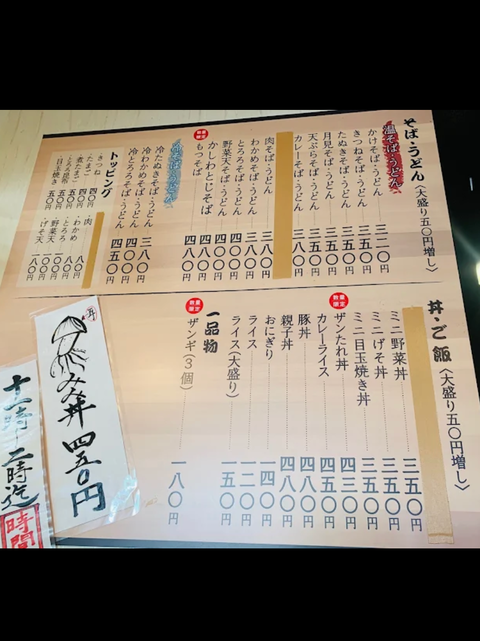 そば・うどん〈大盛り五〇円増し〉
温そば・うどん
かけそば・うどん 三一〇円
きつねそば・うどん 三五〇円
たぬきそば・うどん 三五〇円
月見そば・うどん 三五〇円
天ぷらそば・うどん 三五〇円
カレーそば・うどん
肉そば・うどん 四八〇円
わかめそば・うどん 三八〇円
とろろそば・うどん 四〇〇円
野菜天そば・うどん 四〇〇円
かしわとじそば 四八〇円
数量限定
もつそば 四八〇円
冷たぬきそば・うどん 三八〇円
冷わかめそば・うどん 四〇〇円
冷とろろそば・うどん 四五〇円
トッピング
きつね 四〇円
たまご
煮たまご
とろろ昆布 五〇円
目玉焼き 五〇円
肉
わかめ 八〇円
とろろ
野菜天 一〇〇円
げそ天 一八〇円
丼・ご飯〈大盛り五〇円増し〉
ミニ野菜丼 三五〇円
ミニげそ丼 三五〇円
ミニ目玉焼き丼 三五〇円
数量限定
ザンたれ丼 四三〇円
カレーライス 四五〇円
豚丼 四八〇円
親子丼 四八〇円
おにぎり 一〇〇円
ライス 一二〇円
ライス（大盛り） 一五〇円
一品物
数量限定
ザンギ（3個） 一八〇円
丼 四五〇円
時間